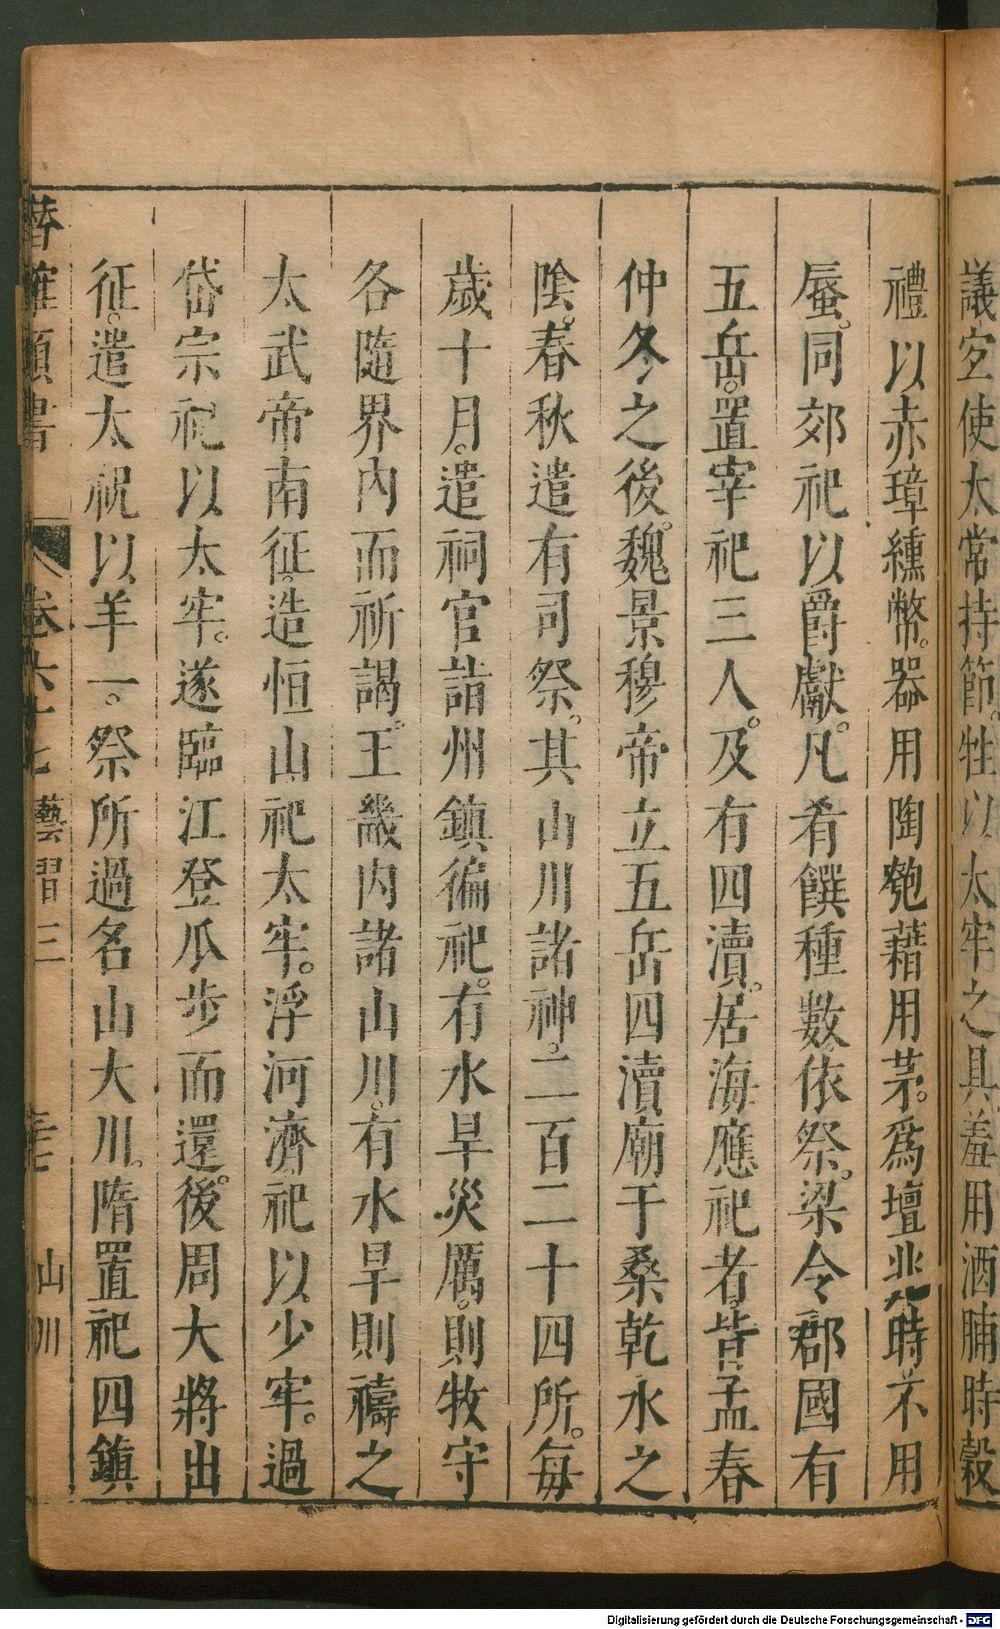 議定使太常持節。牲以太牢之具羞用酒脯時穀
禮以赤璋纁幣。器用陶匏藉用茅。爲壇兆時不用
蜃。同郊祀以爵獻。凡肴饌種數依祭。梁令郡國有
五岳。置宰祀三人。及有四瀆。居海應祀者。皆孟春
仲冬之後。魏景穆帝立五岳四瀆廟于桑乾水之
陰。春秋遣有司祭。其山川諸神。二百二十四所。每
歲十月。遣祠官詣州鎮徧祀。有水旱災厲。則牧守
各隨界內而祈謁。王畿內諸山川。有水旱則禱之
太武帝南征。造恒山祀太牢。浮河濟祀以少牢。過
岱宗祀以太牢。遂臨江登瓜步而還。後周大將出
征。遣太祝以羊一。祭所過名山大川。隋置祀四鎮
潛確類書 卷六十七 藝習三 三七 山川
Digitalisierung gefördert durch die Deutsche Forschungsgemeinschaft - DFG